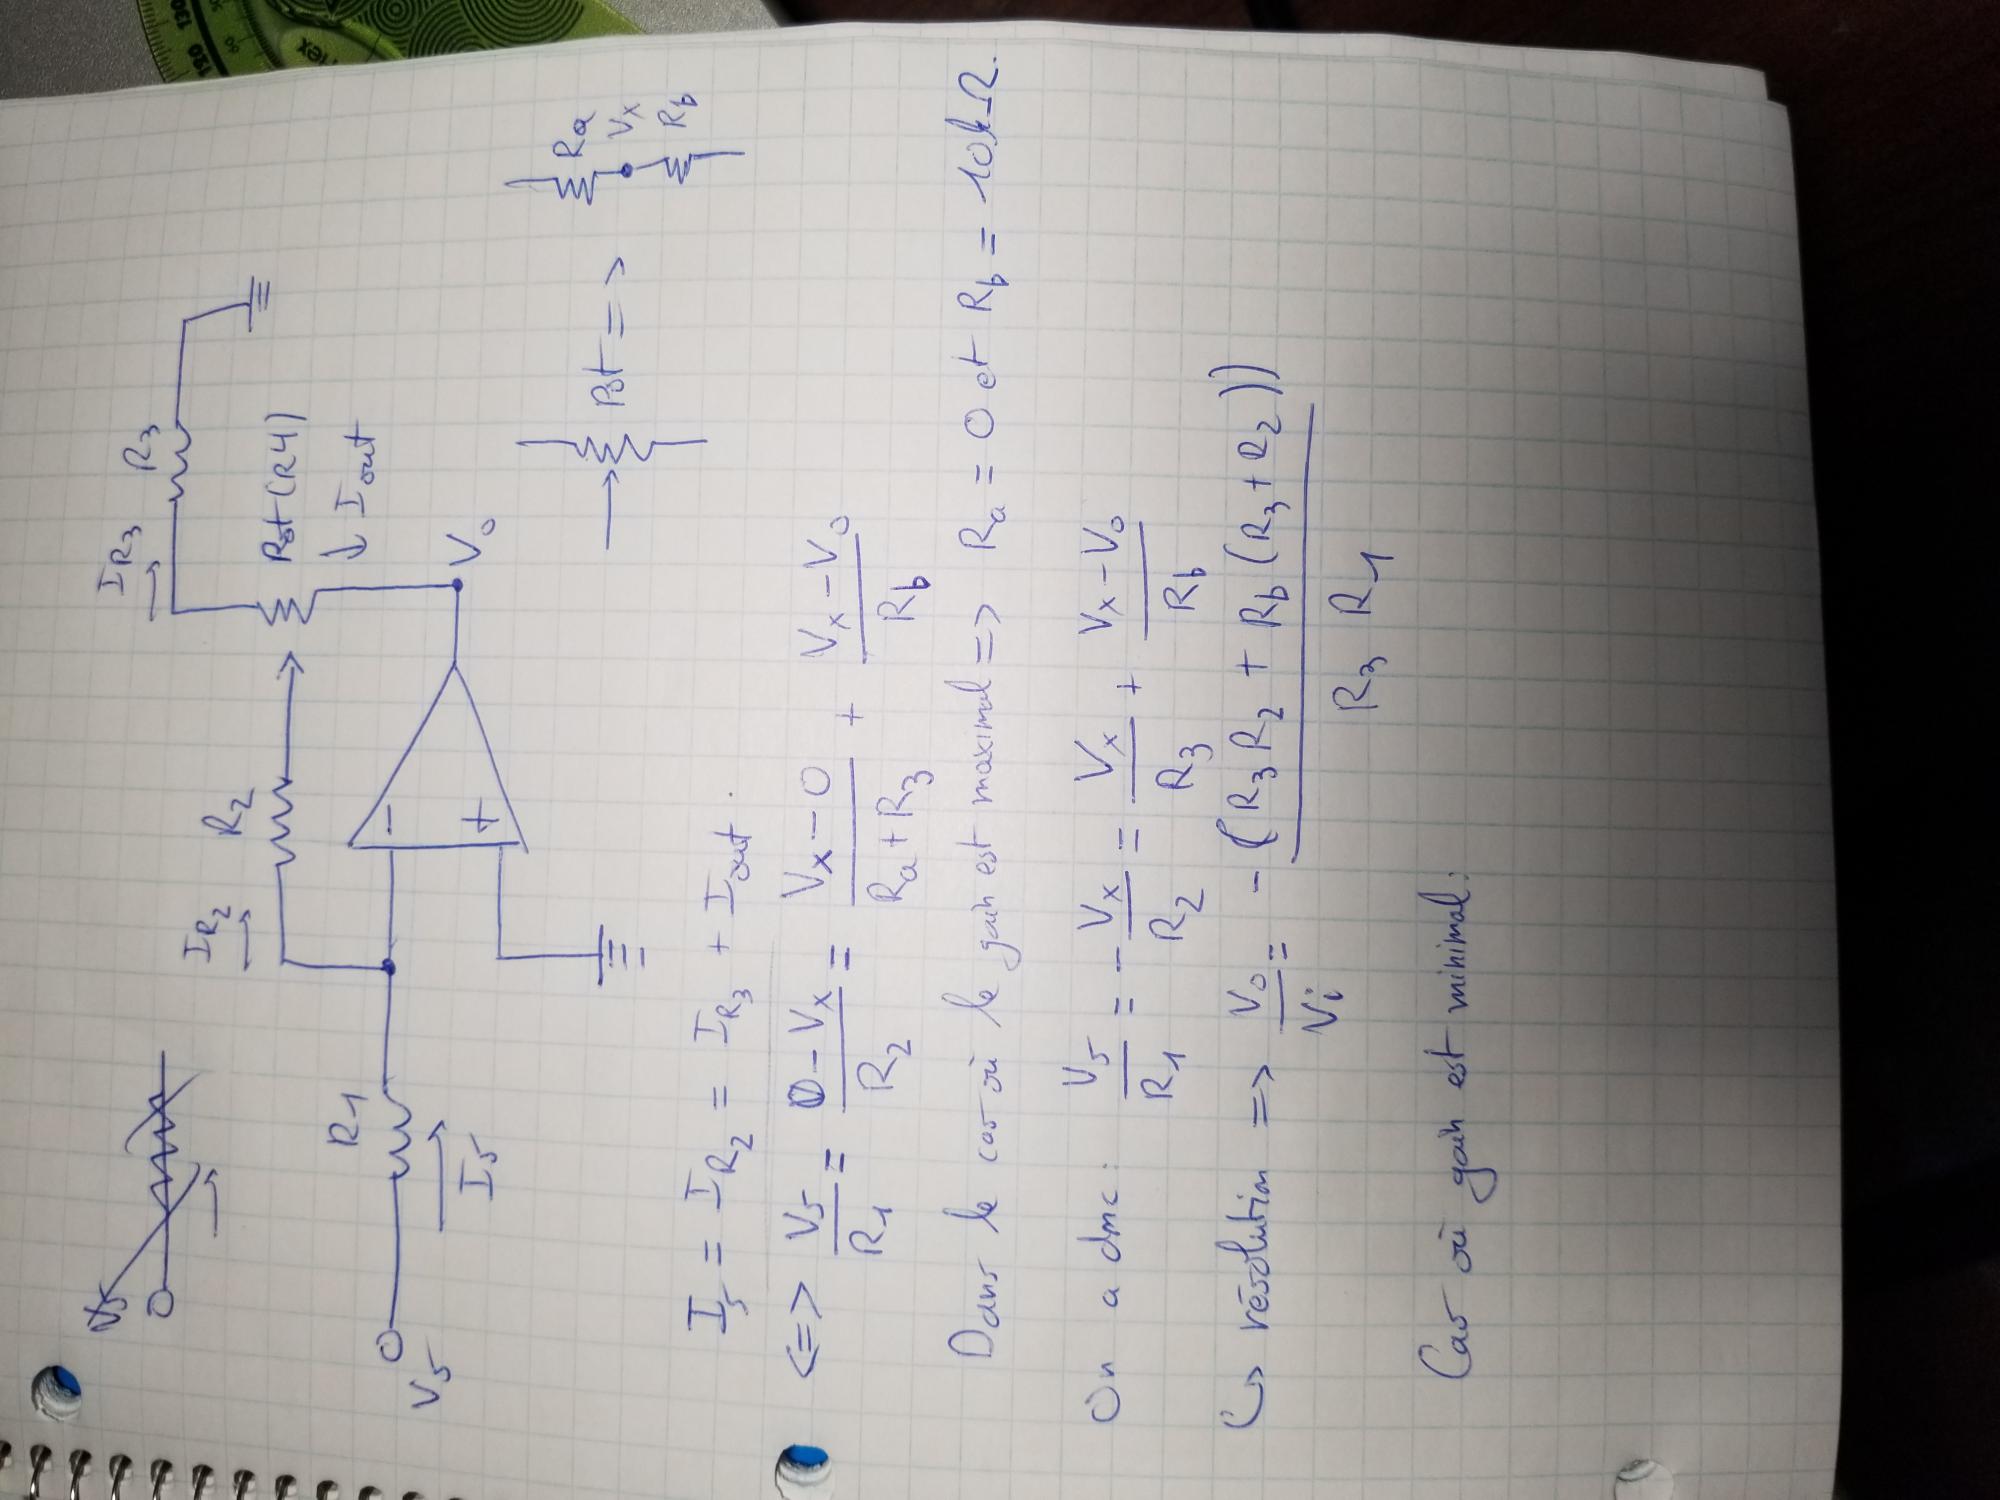 V5
R1
I5
IR2
R2
IR3
R3
Pot (R4)
↓ Iout
V0
−
+
Pot =>
Ra
Vx
Rb
I5 = IR2 = IR3 + Iout.
<=> V5/R1 = 0-Vx/R2 = Vx-0/Ra+R3 + Vx-V0/Rb
Dans le cas où le gain est maximal => Ra = 0 et Rb = 10kΩ.
On a donc: V5/R1 = -Vx/R2 = Vx/R3 + Vx-V0/Rb
↳ résolution => V0/Vi = -(R3R2 + Rb(R3+R2))/R3 R1
Cas où gain est minimal: